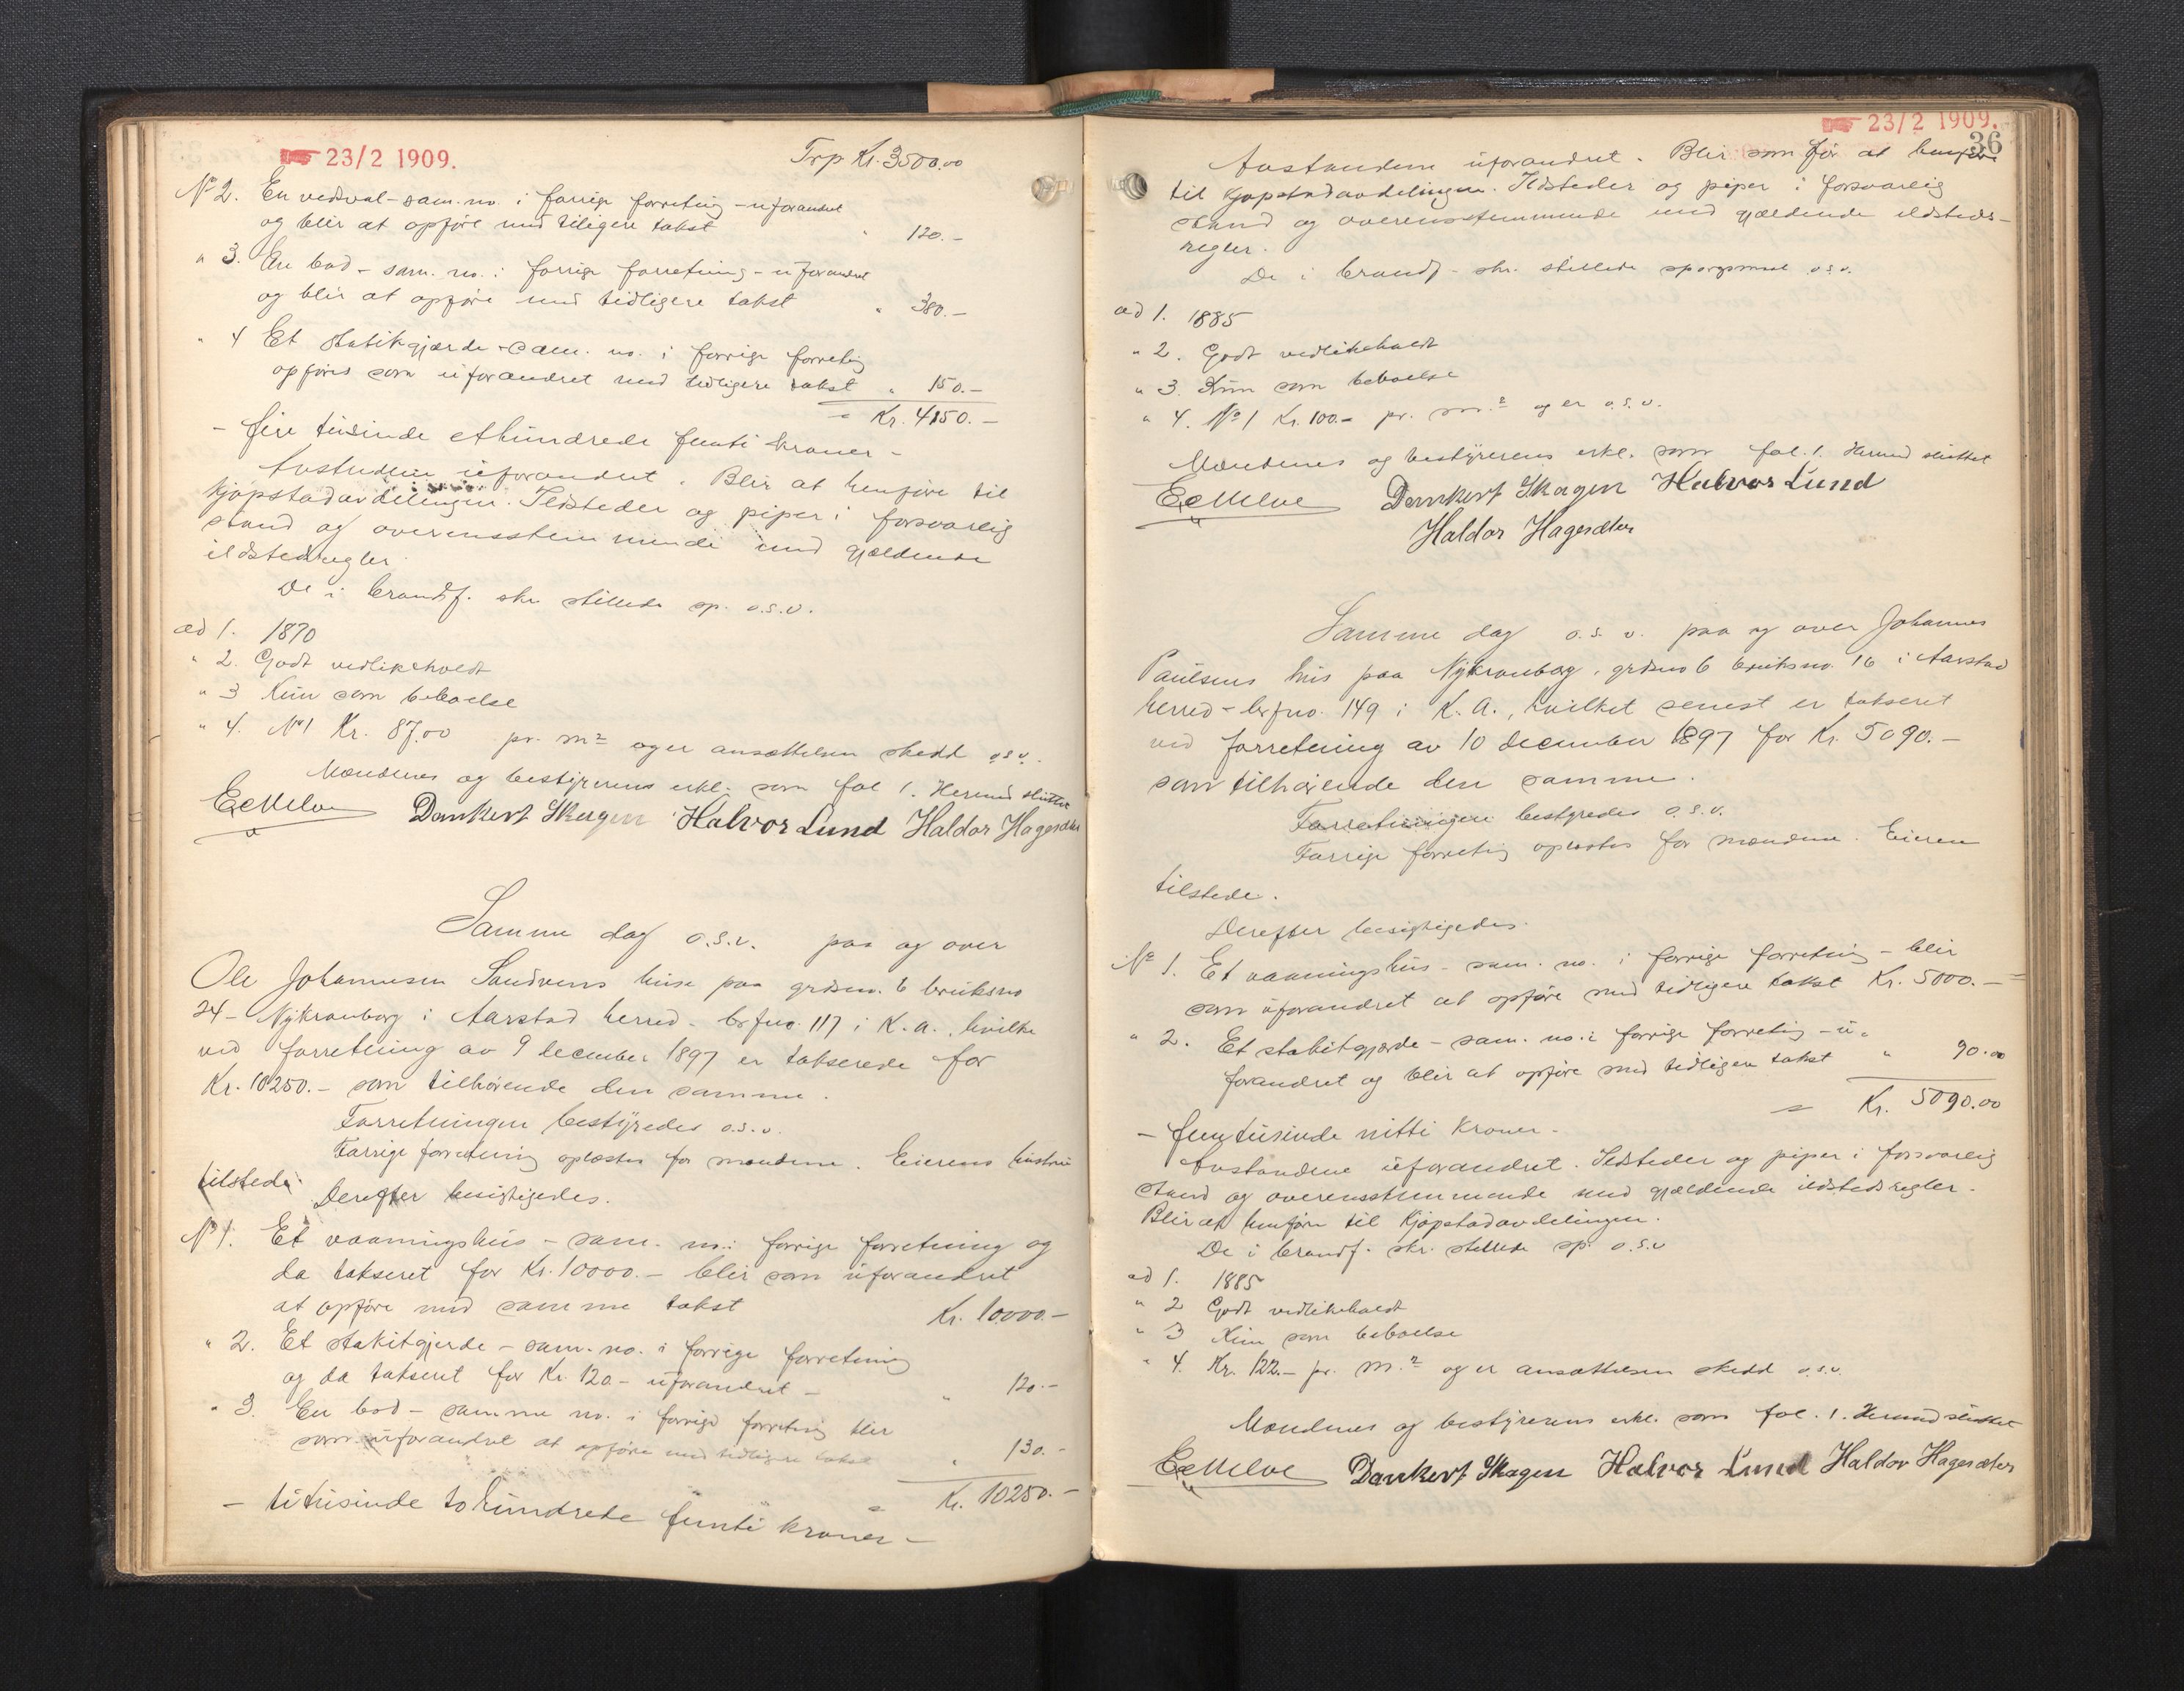 23/2 1909.
Trp Kr. 3500.00
No 2. En vedsval - sam. no. i forrige forretnig - uforandret
og blir at opføre med tiligere takst " 120.-
" 3. En bod - sam. no. i forrige forretning - uforandret
og blir at opføre med tidligere takst " 380.-
" 4 Et stakitgjærde - sam. no. i forrige forretnig
opføres som uforandret med tidligere takst " 150.-
= Kr. 4150.-
- fire tusinde ethundrede femti kroner -
Avstandene uforandret. Blir at henføre til
kjøpstadavdelingen. Ildsteder og piper i forsvarlig
stand og overensstemmende med gjældende
ildstedregler.
De i brandf. skr stillede sp. o.s.v.
ad 1. 1870
" 2. Godt vedlikeholdt
" 3 Kun som beboelse
" 4. No 1 Kr. 87.00 pr. m2 og er ansættelsen skedd o.s.v.
Mændenes og bestyrerens erkl. som fol 1. Hermed sluttet
E Melve Dankert Skagen Halvor Lund Haldor Hagesæter
Samme dag o.s.v. paa og over
Ole Johannesen Sandvens huse paa grdsno. 6 bruksno
24 - Nykronborg i Aarstad herred - brfno. 117 i K.a., hvilke
ved forretning av 9 december 1897 er takserede for
Kr. 10250.- som tilhørende den samme.
Forretningen bestyredes o.s.v.
Forrige forretning oplæstes for mændene. Eierens hustru
tilstede.
Derefter besigtigedes.
No 1. Et vaaningshus - sam. no. i forrige forretning og
da takseret for Kr. 10000.- blir som uforandret
at opføre med samme takst Kr. 10000.-
" 2. Et stakitgjerde - sam. no. i forrige forretning
og da takseret for Kr. 120.- uforandret - " 120.-
" 3. En bod - samme no. i forrige forretnig blir
som uforandret at opføre med tidligere takst " 130.-
= Kr. 10250.-
- titusinde tohundrede femti kroner -
23/2 1909.
36
Avstandene uforandret. Blir som før at henføre
til Kjøpstadavdelingen. Ildsteder og piper i forsvarlig
stand og overensstemmende med gjældende ildsteds-
regler.
De i brandf. skr. stillede spørgsmaal o.s.v.
ad 1. 1885
" 2. Godt vedlikeholdt
" 3. Kun som beboelse
" 4. No 1 Kr. 100.- pr. m.2 og er o.s.v.
Mændenes og bestyrerens erkl. som fol. 1. Hermed sluttet
E Melve Dankert Skagen Halvor Lund
Haldor Hagesæter
Samme dag o.s.v. paa og over Johannes
Paulsens hus paa Nykronborg, grdsno 6 bruksno. 16 i Aarstad
herred - brfno. 149 i K.A., hvilket senest er takseret
ved forretning av 10 december 1897 for Kr. 5090.-
som tilhørende den samme.
Forretningen bestyredes o.s.v.
Forrige forretnig oplæstes for mændene. Eieren
tilstede.
Derefter besigtigedes.
No 1. Et vaaningshus - sam. no. i forrige forretnig - blir
som uforandret at opføre med tidligere takst Kr. 5000.-
" 2. Et stakitgjærde - sam. no. i forrige forretnig - u-
forandret og blir at opføre med tidligere takst " 90.00
= Kr. 5090.00
- femtusinde nitti kroner -
Avstandene uforandret. Ildsteder og piper i forsvarlig
stand og overensstemmende med gjældende ildstedsregler.
Blir at henføre til Kjøpstadavdelingen.
De i brandf. skr. stillede sp. o.s.v
ad 1. 1885
" 2 Godt vedlikeholdt
" 3 Kun som beboelse
" 4. Kr. 122.- pr. m.2 og er ansættelsen skedd o.s.v.
Mændenes og bestyrerens erkl. som fol. 1. Hermed sluttet
E Melve Dankert Skagen Halvor Lund Haldor Hagesæter